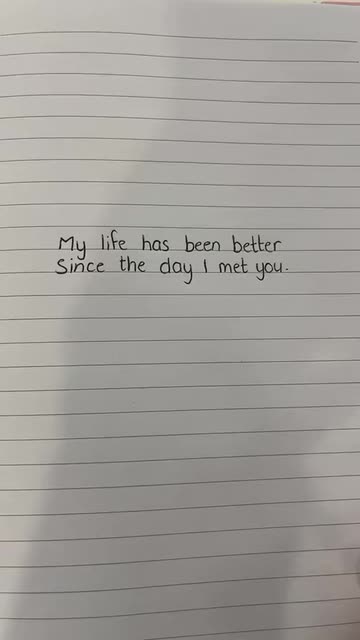 My life has been better
Since the day I met you.